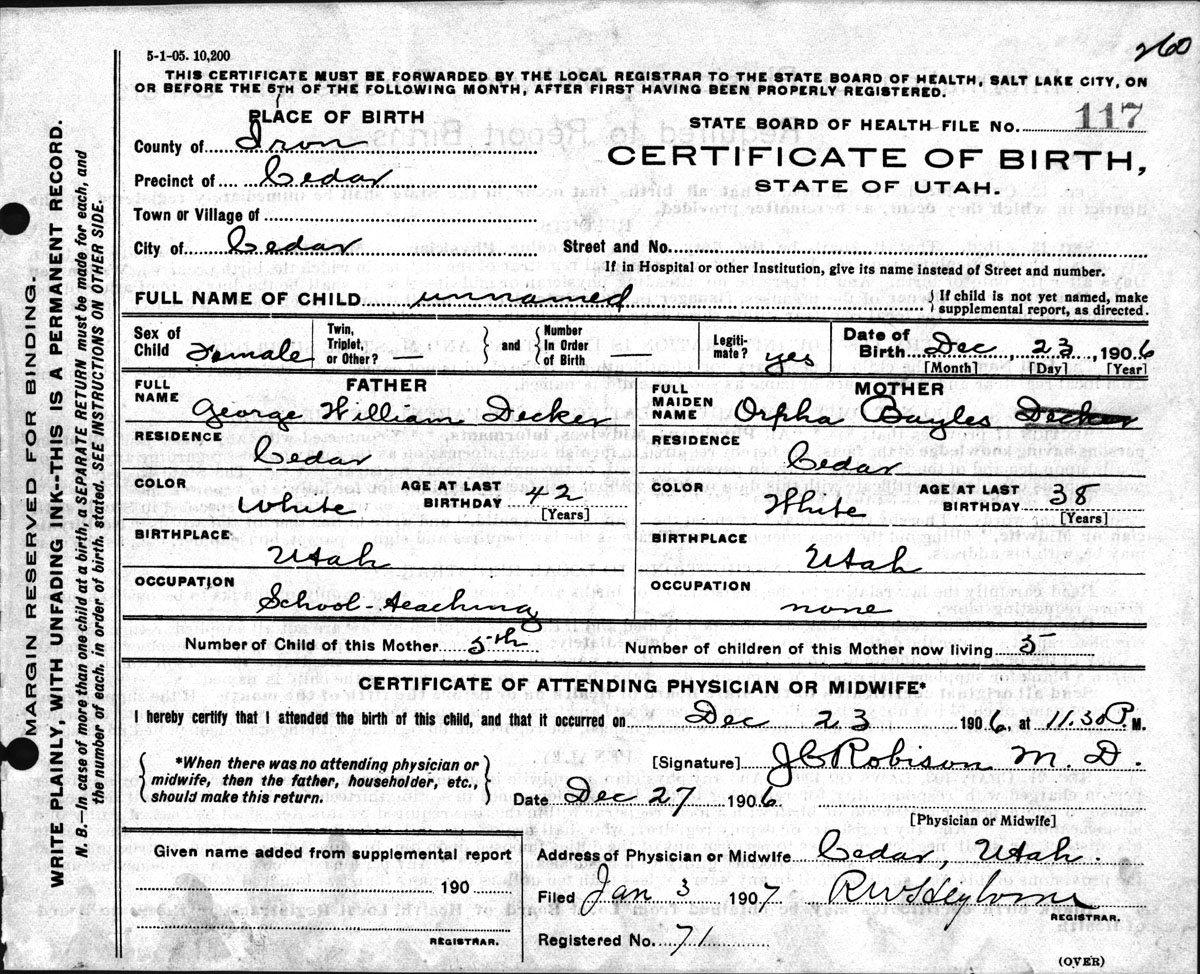 260
5-1-05. 10,200
THIS CERTIFICATE MUST BE FORWARDED BY THE LOCAL REGISTRAR TO THE STATE BOARD OF HEALTH, SALT LAKE CITY, ON
OR BEFORE THE 5TH OF THE FOLLOWING MONTH, AFTER FIRST HAVING BEEN PROPERLY REGISTERED.
PLACE OF BIRTH
STATE BOARD OF HEALTH FILE No. 117
County of Iron
CERTIFICATE OF BIRTH,
Precinct of Cedar
STATE OF UTAH.
Town or Village of
City of Cedar
Street and No.
If in Hospital or other Institution, give its name instead of Street and number.
FULL NAME OF CHILD unnamed { If child is not yet named, make
supplemental report, as directed.
Sex of Child Female
Twin, Triplet, or Other? —
and
Number In Order of Birth —
Legitimate? yes
Date of Birth Dec, 23, 1906
[Month] [Day] [Year]
FATHER
FULL NAME George William Decker
RESIDENCE
Cedar
COLOR White
AGE AT LAST BIRTHDAY 42
[Years]
BIRTHPLACE
Utah
OCCUPATION
School-teaching
MOTHER
FULL MAIDEN NAME Orpha Bayles Decker
RESIDENCE
Cedar
COLOR White
AGE AT LAST BIRTHDAY 38
[Years]
BIRTHPLACE
Utah
OCCUPATION
none
Number of Child of this Mother 5th
Number of children of this Mother now living 5
CERTIFICATE OF ATTENDING PHYSICIAN OR MIDWIFE*
I hereby certify that I attended the birth of this child, and that it occurred on Dec 23 1906, at 11.30 P. M.
*When there was no attending physician or
midwife, then the father, householder, etc.,
should make this return.
[Signature] J C Robison M. D.
Date Dec 27 1906.
[Physician or Midwife]
Given name added from supplemental report
190
REGISTRAR.
Address of Physician or Midwife Cedar, Utah.
Filed Jan 3 1907 R W Heyborne
REGISTRAR.
Registered No. 71
(OVER)
MARGIN RESERVED FOR BINDING.
WRITE PLAINLY, WITH UNFADING INK--THIS IS A PERMANENT RECORD.
N. B.—In case of more than one child at a birth, a SEPARATE RETURN must be made for each, and
the number of each, in order of birth, stated. SEE INSTRUCTIONS ON OTHER SIDE.